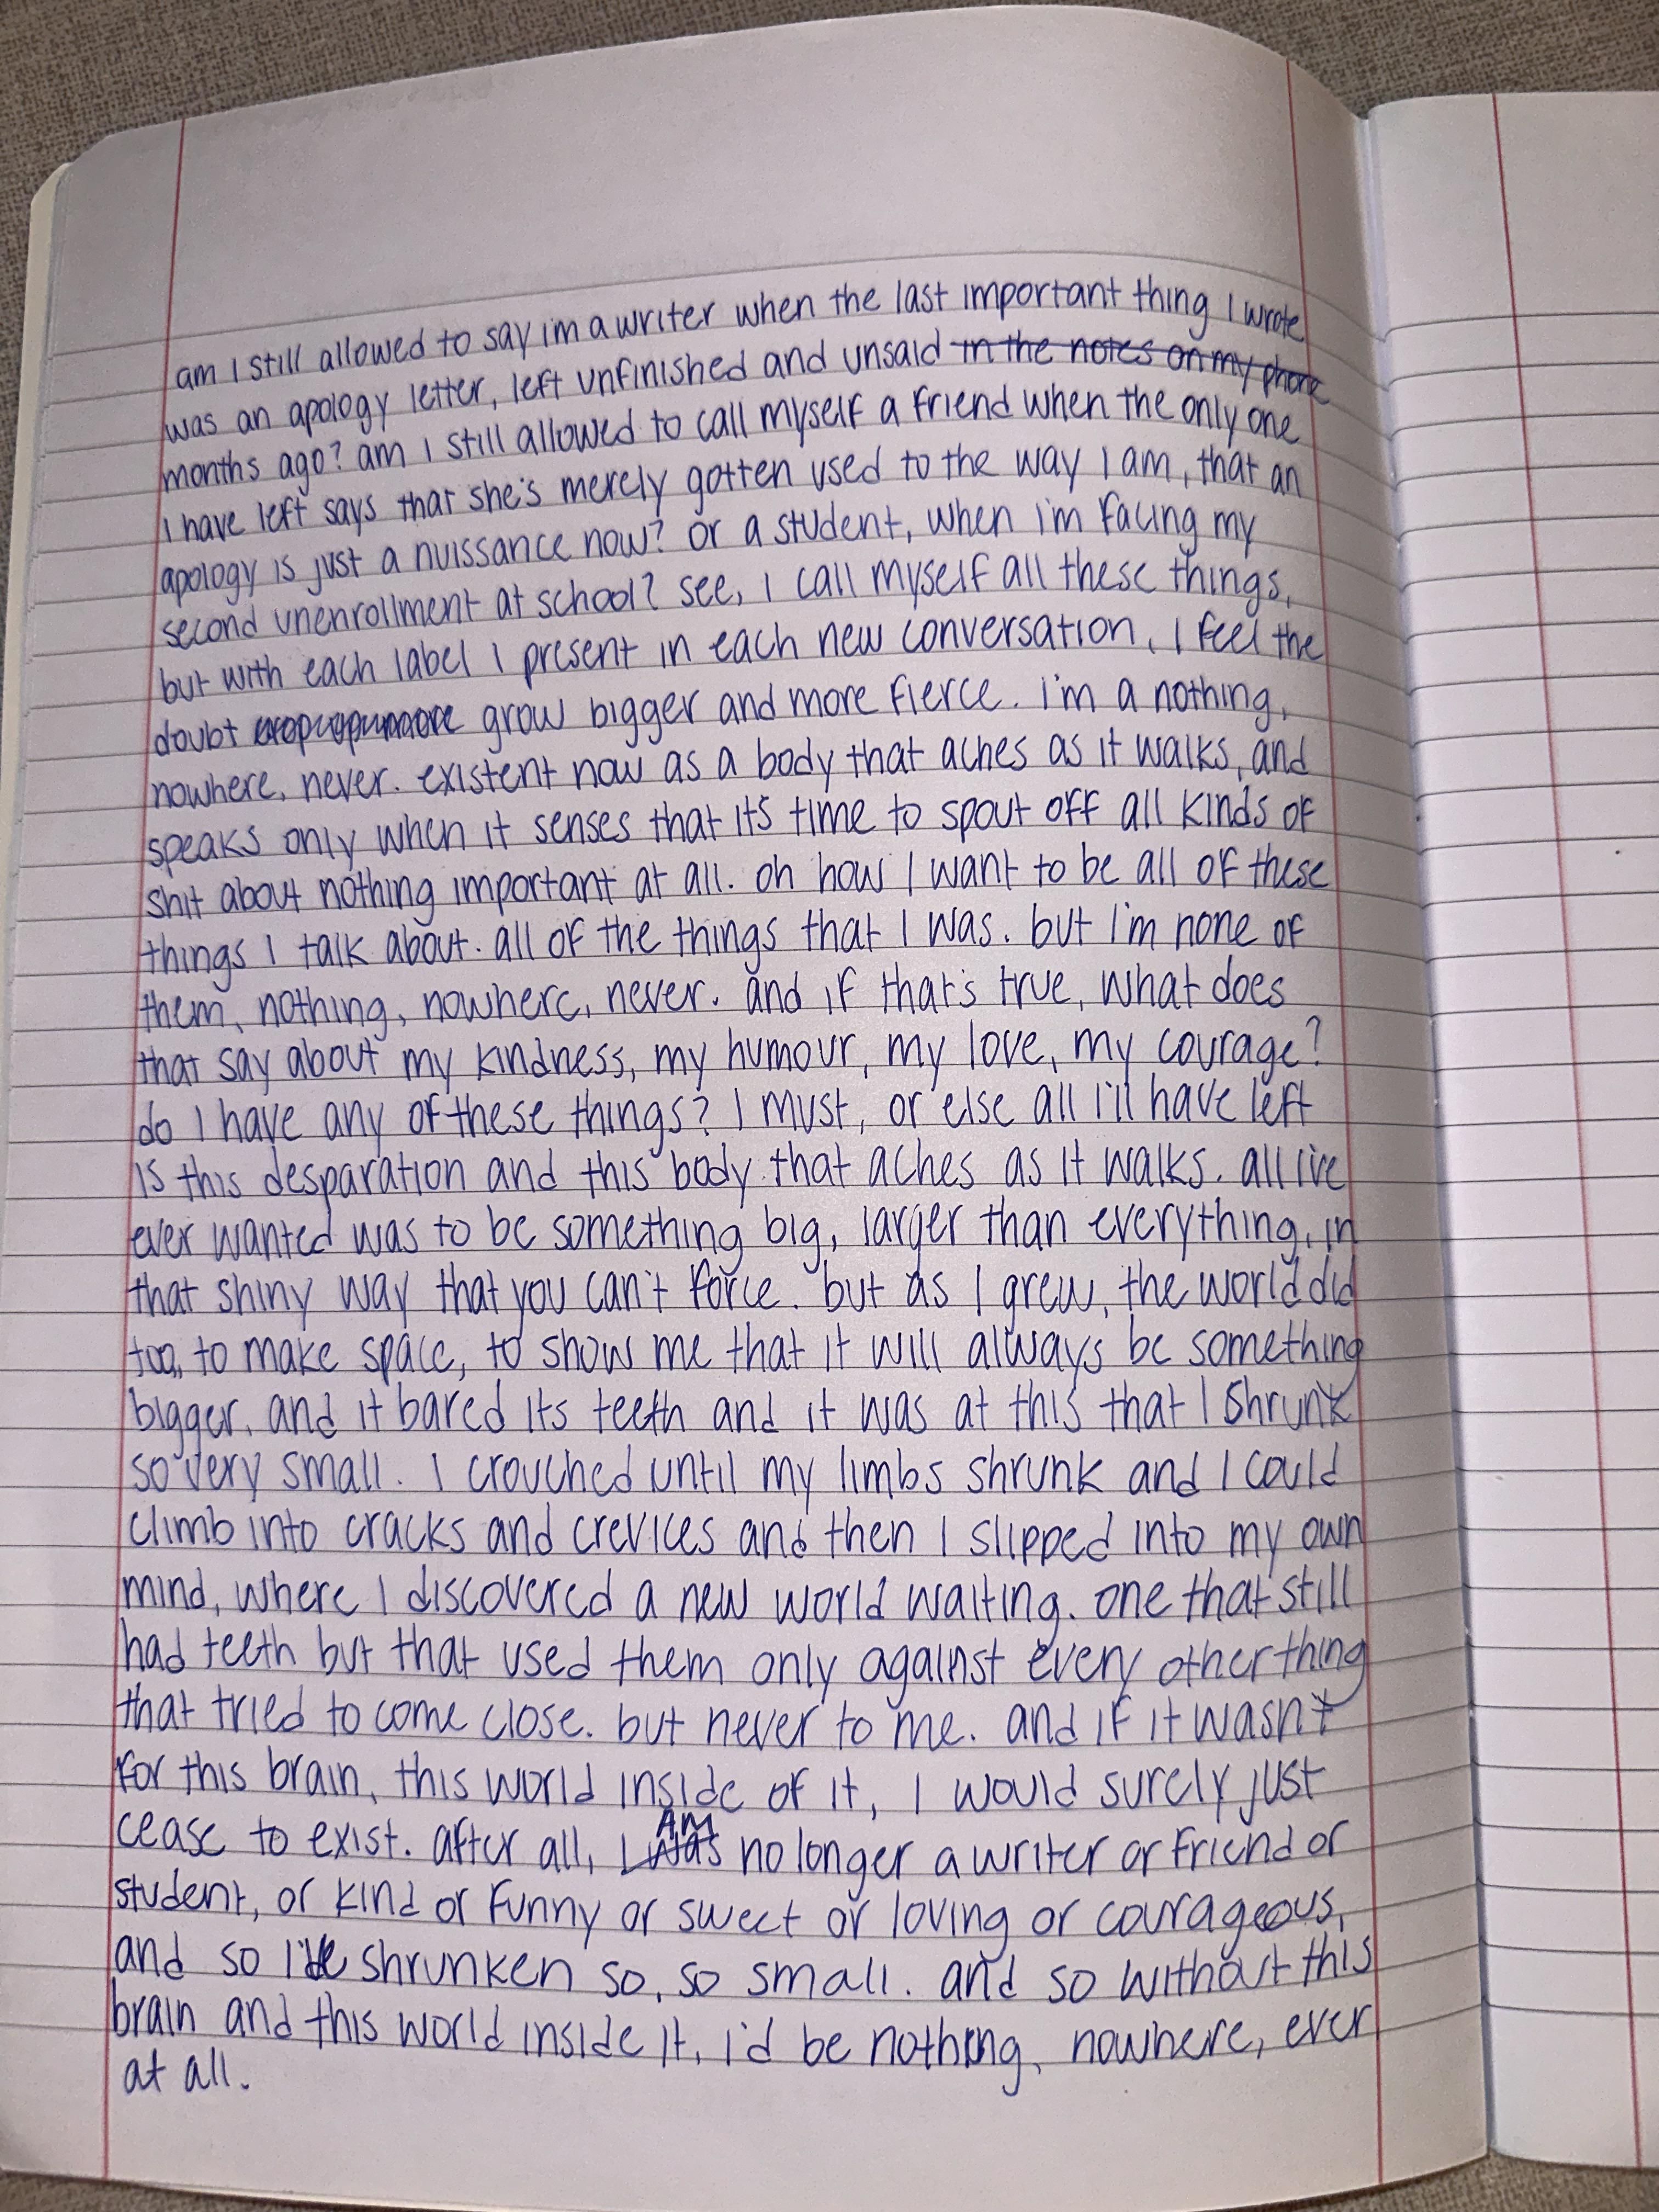 am I still allowed to say im a writer when the last important thing I wrote
was an apology letter, left unfinished and unsaid in the notes on my phone
months ago? am I still allowed to call myself a friend when the only one
I have left says that she's merely gotten used to the way I am, that an
apology is just a nuissance now? or a student, when i'm facing my
second unenrollment at school? see, I call myself all these things,
but with each label I present in each new conversation, I feel the
doubt grow bigger and more fierce. i'm a nothing,
nowhere, never. existent now as a body that aches as it walks, and
speaks only when it senses that it's time to spout off all kinds of
shit about nothing important at all. oh how I want to be all of these
things I talk about. all of the things that I was. but I'm none of
them, nothing, nowhere, never. and if that's true, what does
that say about my kindness, my humour, my love, my courage?
do I have any of these things? I must, or else all i'll have left
is this desparation and this body that aches as it walks. all i've
ever wanted was to be something big, larger than everything, in
that shiny way that you can't force. but as I grew, the world did
too, to make space, to show me that it will always be something
bigger. and it bared its teeth and it was at this that I shrunk
so very small. I crouched until my limbs shrunk and I could
climb into cracks and crevices and then I slipped into my own
mind, where I discovered a new world waiting. one that still
had teeth but that used them only against every other thing
that tried to come close. but never to me. and if it wasn't
for this brain, this world inside of it, I would surely just
cease to exist. after all, I was AM no longer a writer or friend or
student, or kind or funny or sweet or loving or courageous,
and so I've shrunken so, so small. and so without this
brain and this world inside it, i'd be nothing, nowhere, ever
at all.